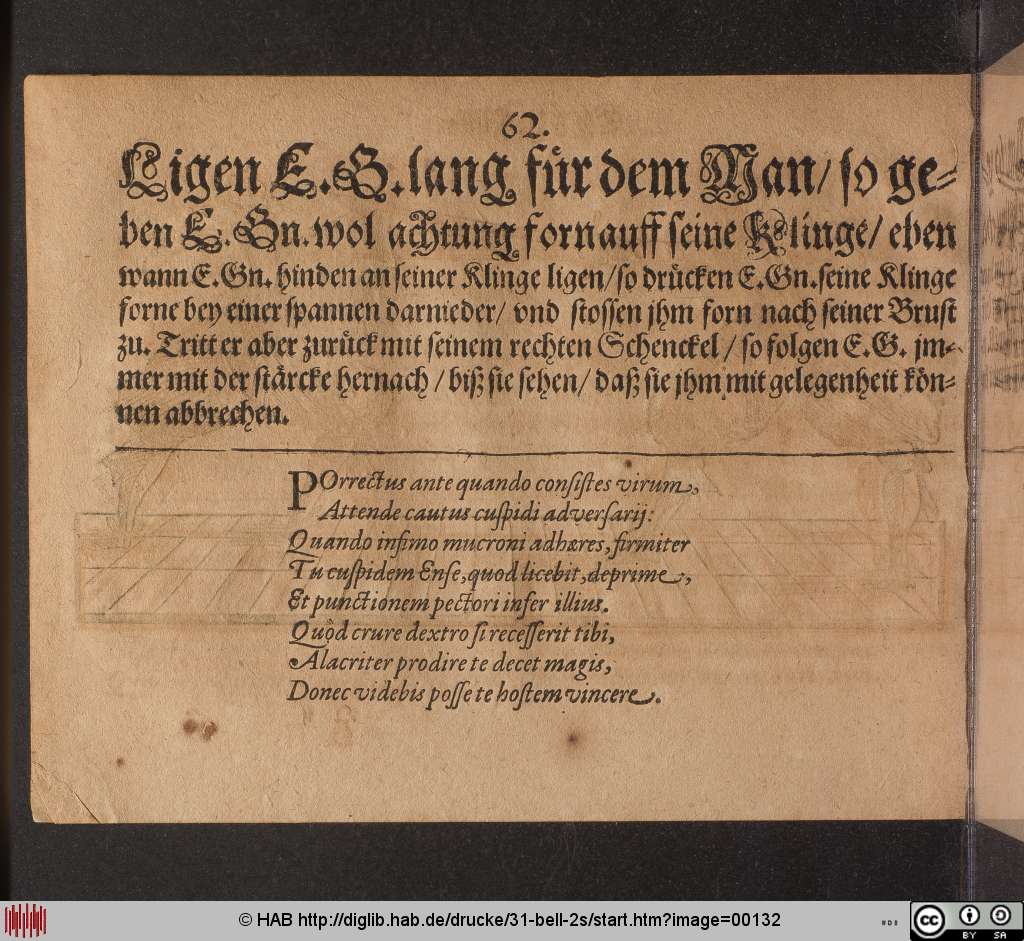 62.
Ligen E. G. lang für dem Man/ so ge-
ben E. Gn. wol achtung forn auff seine Klinge/ eben
wann E. Gn. hinden an seiner Klinge ligen/ so drücken E. Gn. seine Klinge
forne bey einer spannen darnieder/ vnd stossen jhm forn nach seiner Brust
zu. Tritt er aber zurück mit seinem rechten Schenckel/ so folgen E. G. jm-
mer mit der stärcke hernach/ biß sie sehen/ daß sie jhm mit gelegenheit kön-
nen abbrechen.
POrrectus ante quando consistes virum,
Attende cautus cuspidi adversarij:
Quando infimo mucroni adhæres, firmiter
Tu cuspidem Ense, quod licebit, deprime,
Et punctionem pectori infer illius.
Quòd crure dextro si recesserit tibi,
Alacriter prodire te decet magis,
Donec videbis posse te hostem vincere.
© HAB http://diglib.hab.de/drucke/31-bell-2s/start.htm?image=00132
cc BY SA